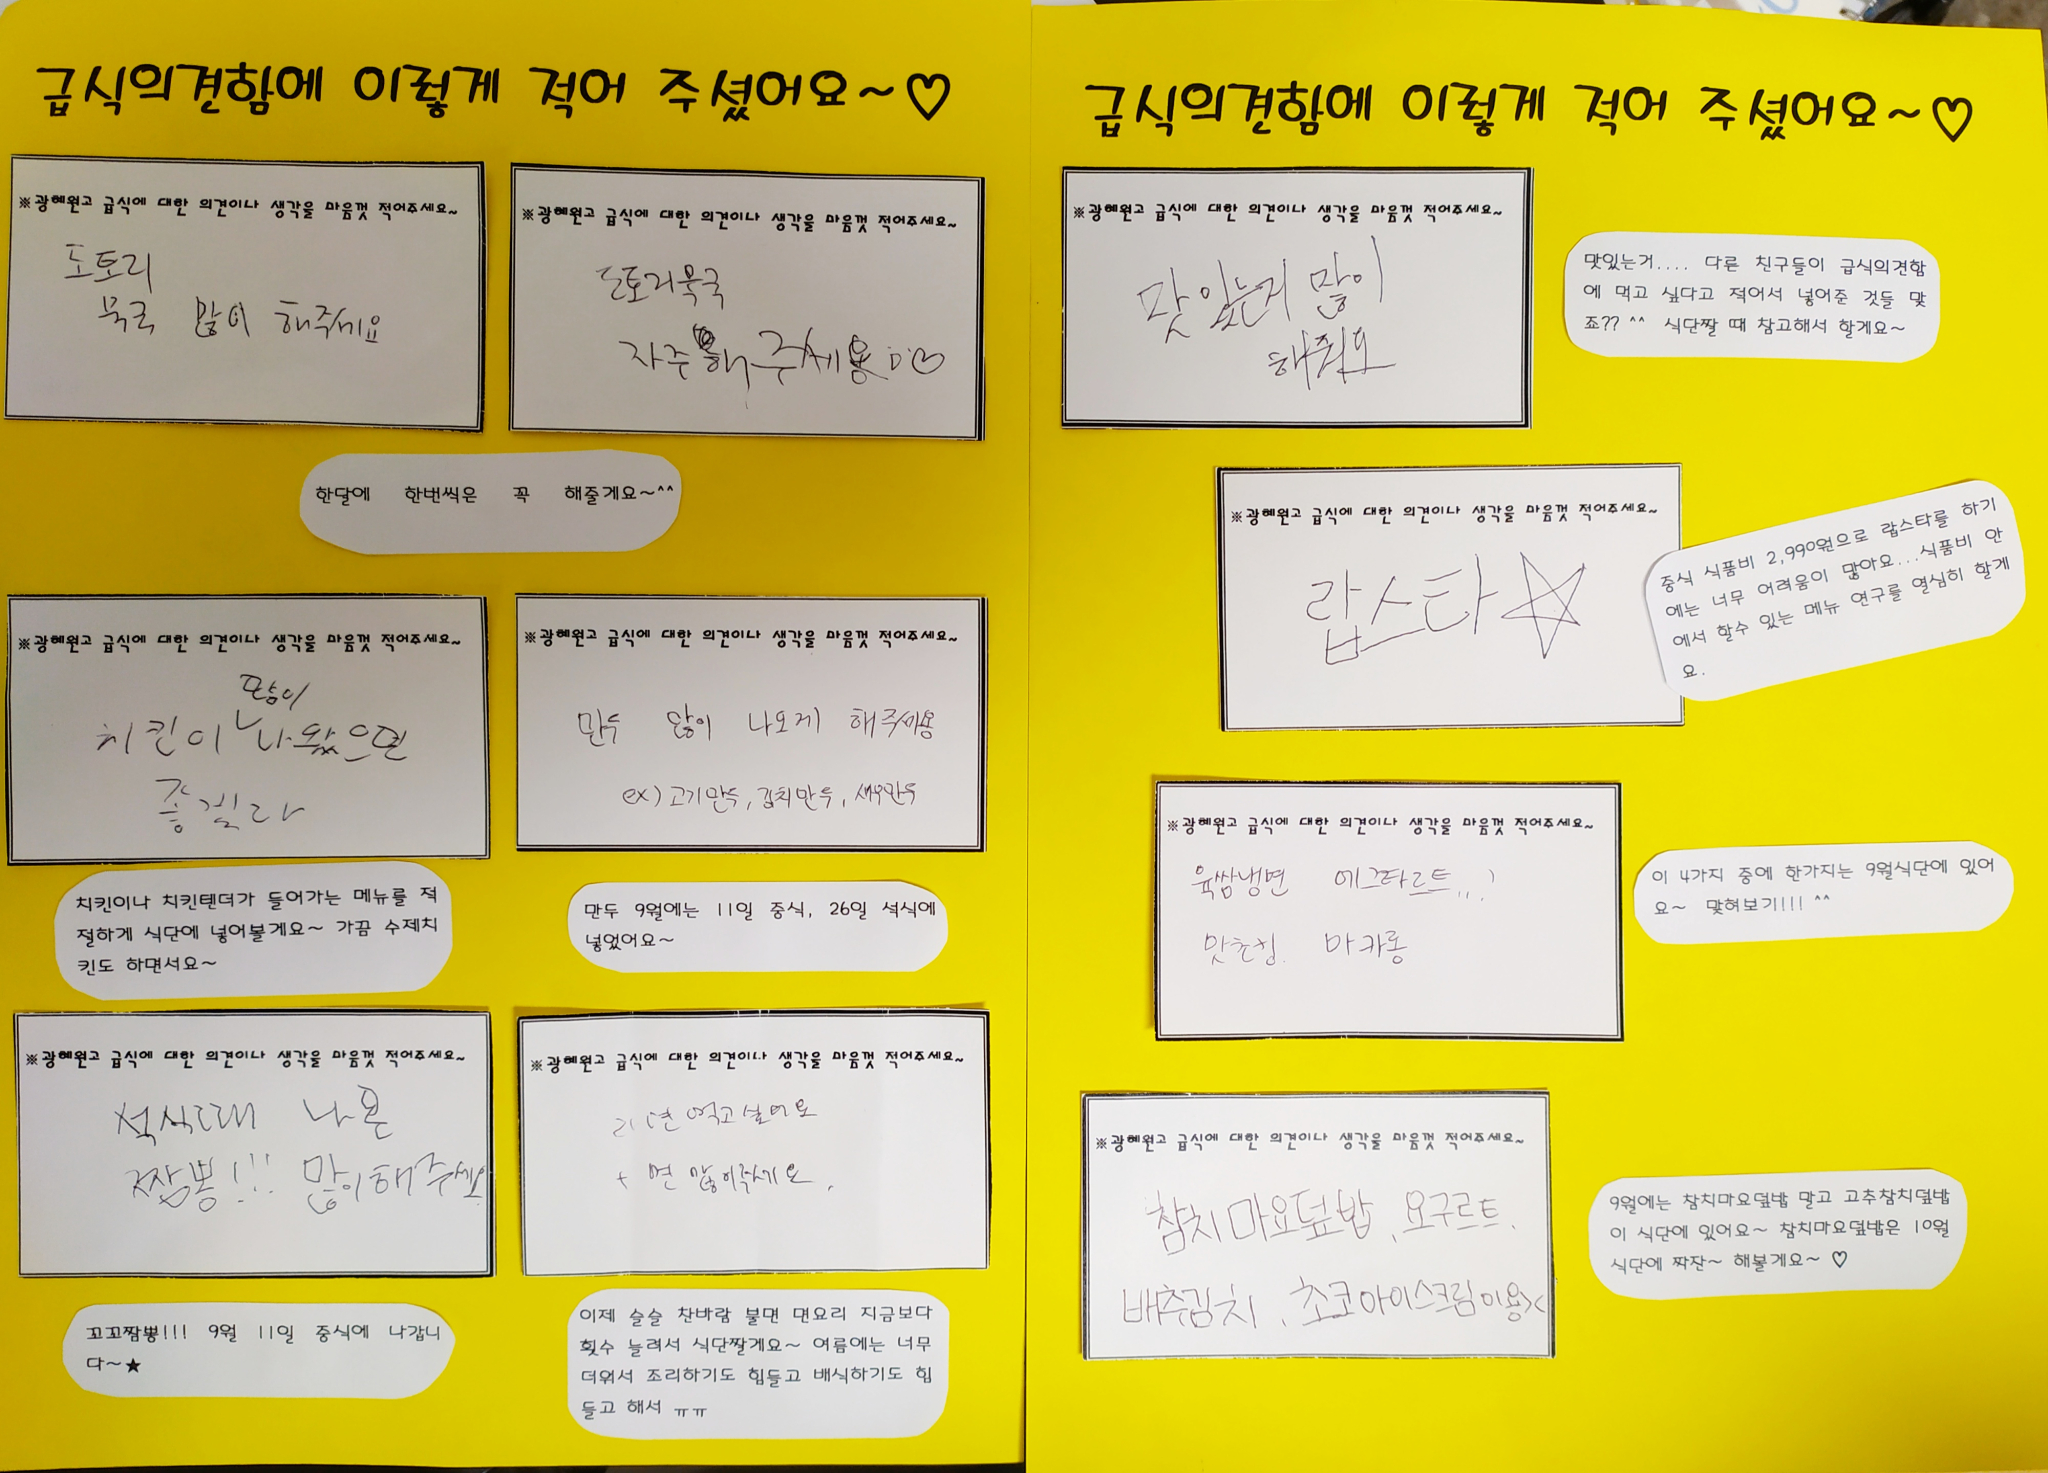 급식의견함에 이렇게 적어 주셨어요~♡
※광혜원고 급식에 대한 의견이나 생각을 마음껏 적어주세요~
도토리
묵국 많이 해주세요
※광혜원고 급식에 대한 의견이나 생각을 마음껏 적어주세요~
도토리묵국
자주 해 주세용
한달에 한번씩은 꼭 해줄게요~^^
※광혜원고 급식에 대한 의견이나 생각을 마음껏 적어주세요~
많이
치킨이 나왔으면
좋겠다
치킨이나 치킨텐더가 들어가는 메뉴를 적
절하게 식단에 넣어볼게요~ 가끔 수제치
킨도 하면서요~
※광혜원고 급식에 대한 의견이나 생각을 마음껏 적어주세요~
만두 많이 나오게 해주세용
ex) 고기만두, 김치만두, 새우만두
만두 9월에는 11일 중식, 26일 석식에
넣었어요~
※광혜원고 급식에 대한 의견이나 생각을 마음껏 적어주세요~
석식때 나온
짬뽕!!! 많이해주세요
꼬꼬짬뽕!!! 9월 11일 중식에 나갑니
다~★
※광혜원고 급식에 대한 의견이나 생각을 마음껏 적어주세요~
라면 먹고싶어요
+ 면 많이주세요.
이제 슬슬 찬바람 불면 면요리 지금보다
횟수 늘려서 식단짤게요~ 여름에는 너무
더워서 조리하기도 힘들고 배식하기도 힘
들고 해서 ㅠㅠ
급식의견함에 이렇게 적어 주셨어요~♡
※광혜원고 급식에 대한 의견이나 생각을 마음껏 적어주세요~
맛있는거 많이
해줘요
맛있는거.... 다른 친구들이 급식의견함
에 먹고 싶다고 적어서 넣어준 것들 맞
죠?? ^^ 식단짤 때 참고해서 할게요~
※광혜원고 급식에 대한 의견이나 생각을 마음껏 적어주세요~
랍스타☆
중식 식품비 2,990원으로 랍스타를 하기
에는 너무 어려움이 많아요...식품비 안
에서 할수 있는 메뉴 연구를 열심히 할게
요.
※광혜원고 급식에 대한 의견이나 생각을 마음껏 적어주세요~
육쌈냉면 에그타르트...!
맛초킹. 마카롱
이 4가지 중에 한가지는 9월식단에 있어
요~ 맞혀보기!!! ^^
※광혜원고 급식에 대한 의견이나 생각을 마음껏 적어주세요~
참치마요덮밥, 요구르트.
배추김치, 초코아이스크림이용><
9월에는 참치마요덮밥 말고 고추참치덮밥
이 식단에 있어요~ 참치마요덮밥은 10월
식단에 짜잔~ 해볼게요~ ♡